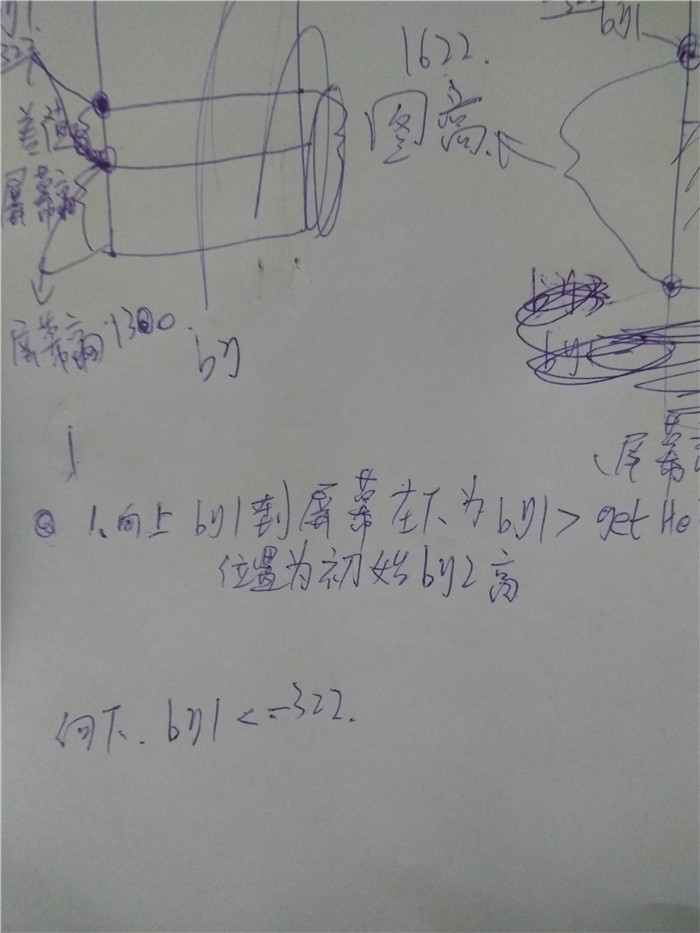 by1
322
1622.
图高
差值
屏幕高
屏幕高1300.
by
屏幕
1、向上 by1到屏幕左下为by1> get He
位置为初始by2高
向下. by1<=-322.